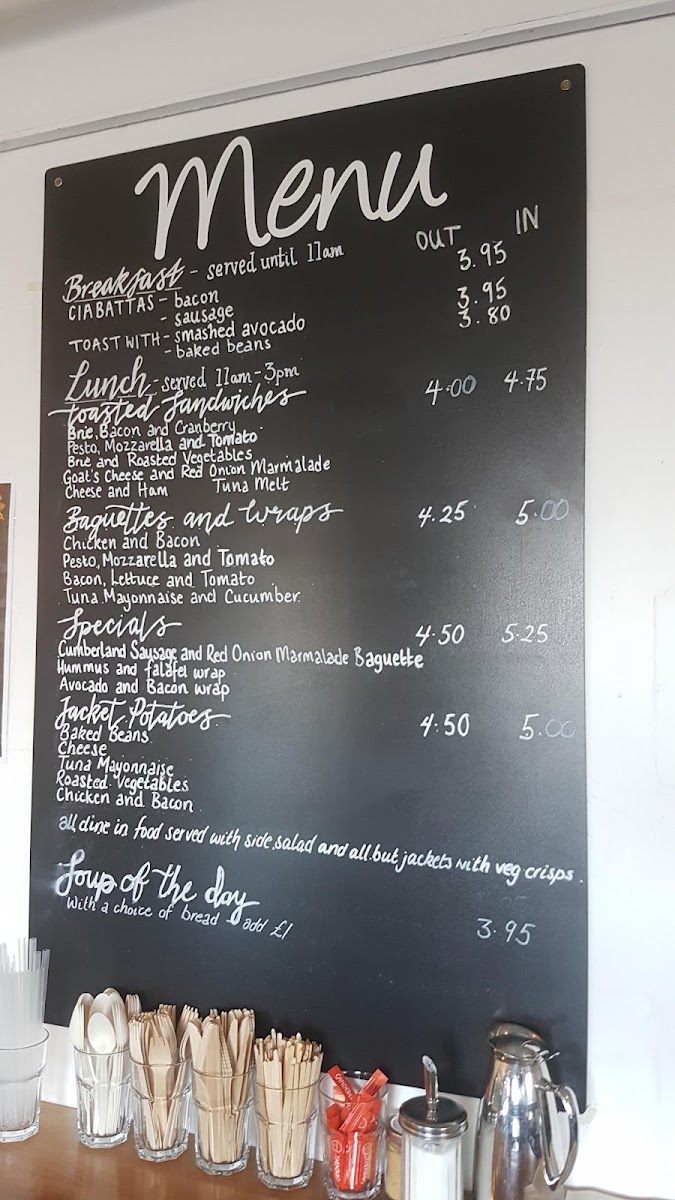 Menu
OUT IN
Breakfast - served until 11am 3.95
CIABATTAS - bacon
- sausage 3.95
TOAST WITH - smashed avocado 3.80
- baked beans
Lunch - served 11am-3pm
Toasted Sandwiches 4.00 4.75
Brie, Bacon and Cranberry
Pesto, Mozzarella and Tomato
Brie and Roasted Vegetables
Goat's Cheese and Red Onion Marmalade
Cheese and Ham Tuna Melt
Baguettes and Wraps 4.25 5.00
Chicken and Bacon
Pesto, Mozzarella and Tomato
Bacon, Lettuce and Tomato
Tuna Mayonnaise and Cucumber
Specials 4.50 5.25
Cumberland Sausage and Red Onion Marmalade Baguette
Hummus and falafel wrap
Avocado and Bacon wrap
Jacket Potatoes 4.50 5.00
Baked Beans
Cheese
Tuna Mayonnaise
Roasted Vegetables
Chicken and Bacon
all dine in food served with side salad and all but jackets with veg crisps.
Soup of the day 3.95
With a choice of bread add £1